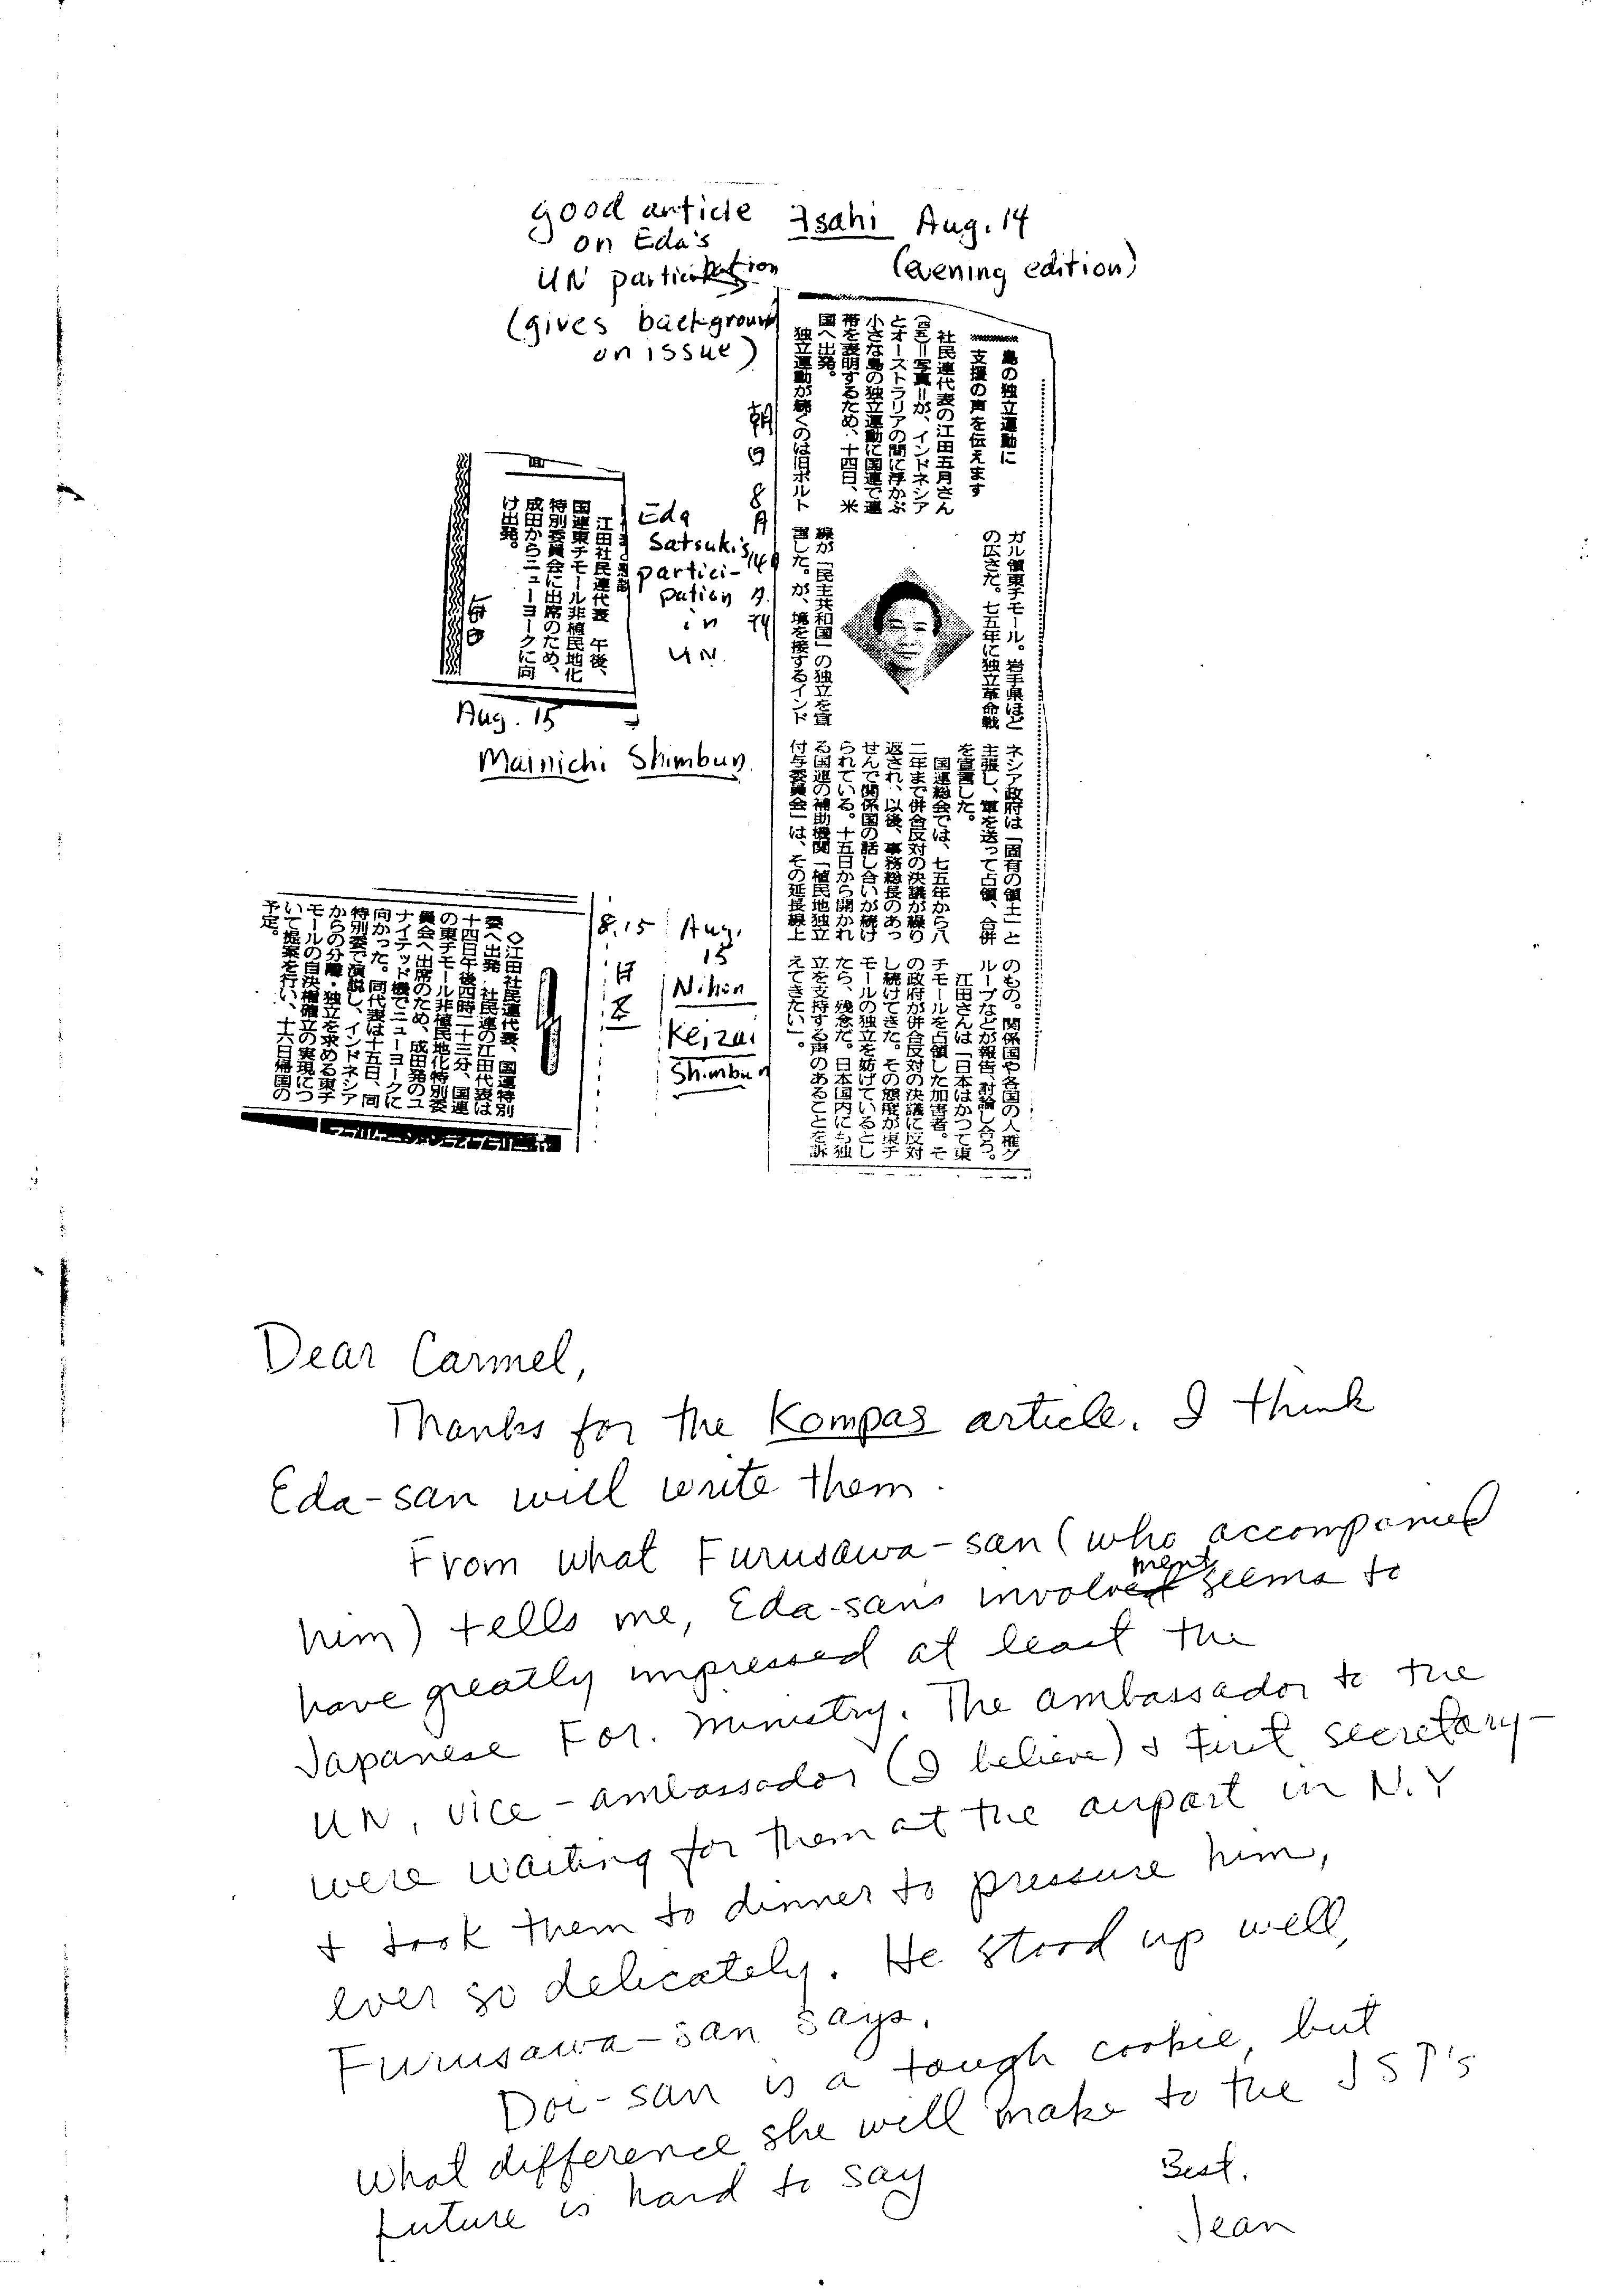 good article
on Eda's
UN participation
(gives background
on issue)
Asahi Aug. 14
(evening edition)
朝日8月14日夕刊
島の独立運動に
支援の声を伝えます
社民連代表の江田五月さん
(四五)=写真=が、インドネシア
とオーストラリアの間に浮かぶ
小さな島の独立運動に国連で連
帯を表明するため、十四日、米
国へ出発。
独立運動が続くのは旧ポルト
ガル領東チモール。岩手県ほど
の広さだ。七五年に独立革命戦
線が「民主共和国」の独立を宣
言した。が、境を接するインド
ネシア政府は「固有の領土」と
主張し、軍を送って占領、合併
を宣言した。
国連総会では、七五年から八
二年まで併合反対の決議が繰り
返され、以後、事務総長のあっ
せんで関係国の話し合いが続け
られている。十五日から開かれ
る国連の補助機関「植民地独立
付与委員会」は、その延長線上
のもの。関係国や各国の人権グ
ループなどが報告、討論し合う。
江田さんは「日本はかつて東
チモールを占領した加害者。そ
の政府が併合反対の決議に反対
し続けてきた。その態度が東チ
モールの独立を妨げているとし
たら、残念だ。日本国内にも独
立を支持する声のあることを訴
えてきたい」。
Eda
Satsuki's
partici-
pation
in
UN.
江田社民連代表 午後、
国連東チモール非植民地化
特別委員会に出席のため、
成田からニューヨークに向
け出発。
毎日
Aug. 15
Mainichi Shimbun
8.15
日
Aug.
15
Nihon
Keizai
Shimbun
◇江田社民連代表、国連特別
委へ出発 社民連の江田代表は
十四日午後四時二十三分、国連
の東チモール非植民地化特別委
員会へ出席のため、成田発のユ
ナイテッド機でニューヨークに
向かった。同代表は十五日、同
特別委で演説し、インドネシア
からの分離・独立を求める東チ
モールの自決権確立の実現につ
いて提案を行い、十六日帰国の
予定。
アプリケーションライブラリー
Dear Carmel,
Thanks for the Kompas article. I think
Eda-san will write them.
From what Furusawa-san (who accompanied
him) tells me, Eda-san's involvement seems to
have greatly impressed at least the
Japanese For. Ministry. The ambassador to the
UN, vice-ambassador (I believe) & first secretary-
were waiting for them at the airport in N.Y
& took them to dinner to pressure him,
ever so delicately. He stood up well,
Furusawa-san says.
Doi-san is a tough cookie, but
what difference she will make to the JSP's
future is hard to say
Best,
Jean